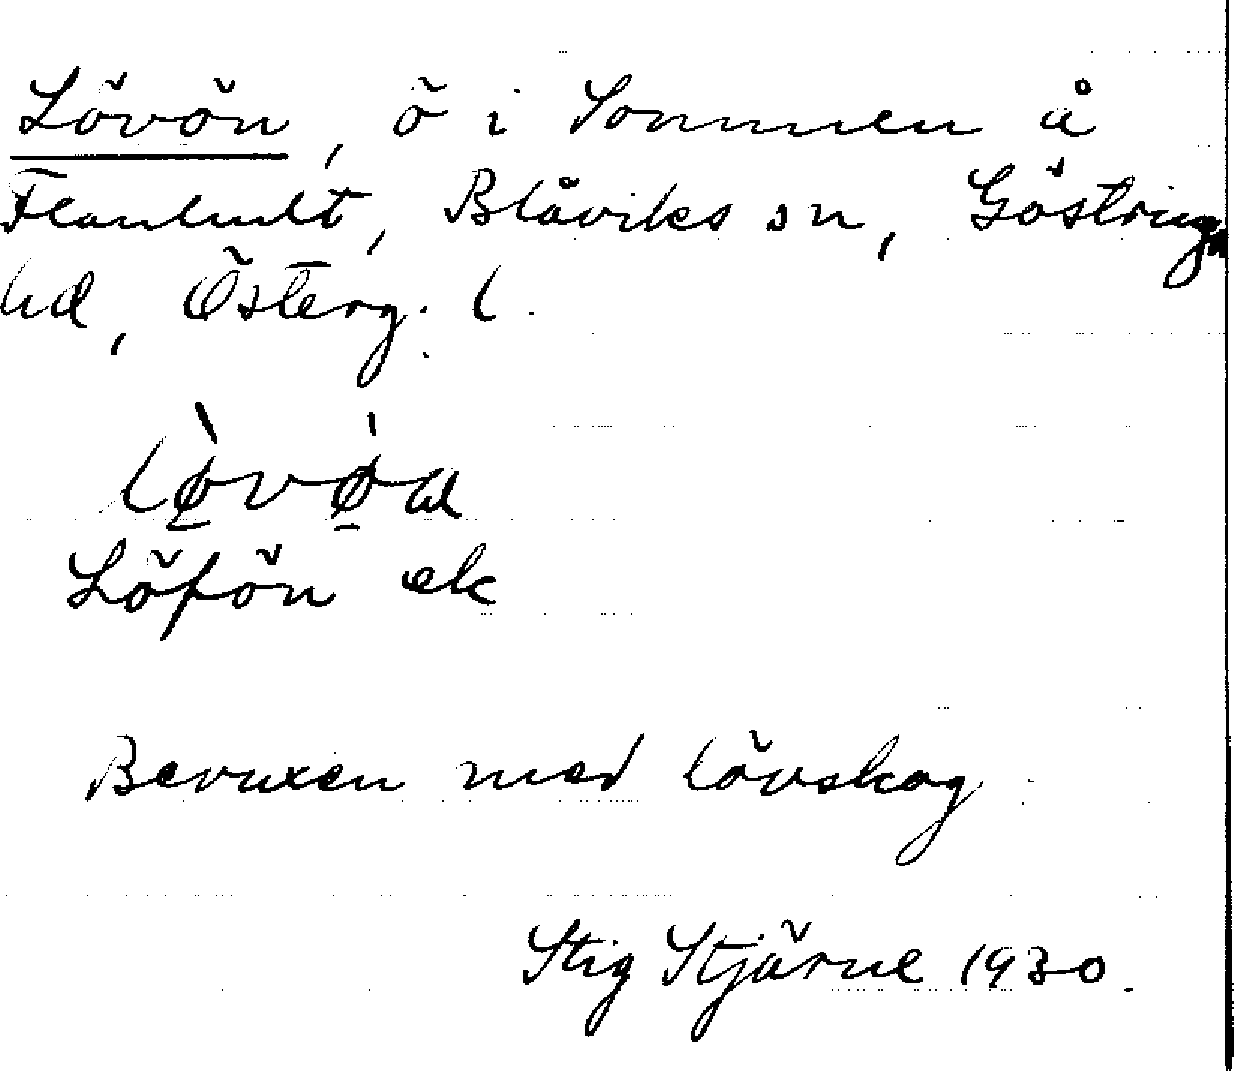 Lövön, ö i Sommen å
Flanhult, Blåviks sn, Göstrings
hd, Österg. l.
lø̀vø̀a
Löfön ek
Bevuxen med lövskog
Stig Stjärne 1930.